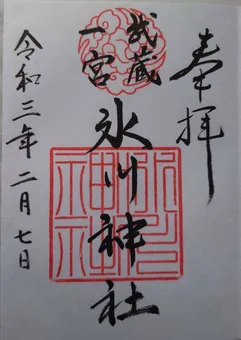 奉拝
武蔵
一宮
氷川神社
令和三年二月七日
氷川
神社